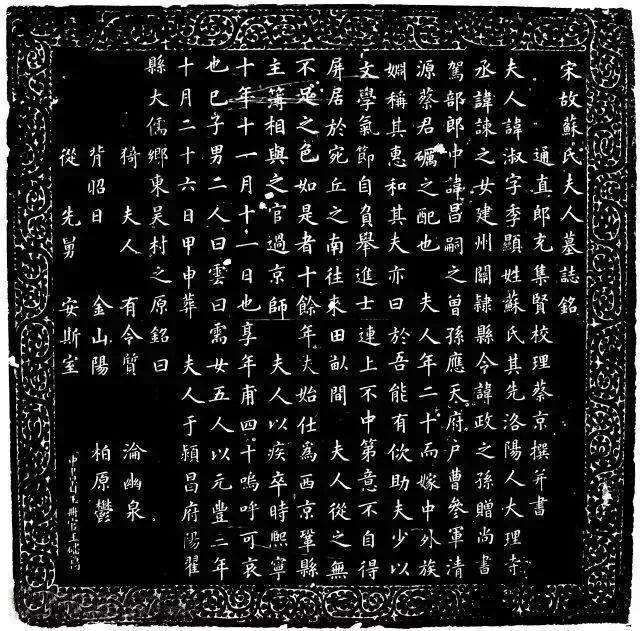 宋故蘇氏夫人墓誌銘
通直郎充集賢校理蔡京撰并書
夫人諱淑字季顯姓蘇氏其先洛陽人大理寺
丞諱諫之女建州關隷縣令諱政之孫贈尚書
駕部郎中諱昌嗣之曾孫應天府户曹參軍清
源蔡君礪之配也 夫人年二十而嫁中外族
婣稱其惠和其夫亦曰於吾能有佽助夫少以
文學氣節自負舉進士連上不中第意不自得
屏居於宛丘之南往來田畝間 夫人從之無
不足之色如是者十餘年夫始仕爲西京鞏縣
主簿相與之官過京師 夫人以疾卒時熙寧
十年十一月十一日也享年甫四十嗚呼可哀
也巳子男二人曰雲曰需女五人以元豐二年
十月二十六日甲申葬 夫人于潁昌府陽翟
縣大儒鄉東吴村之原銘曰
猗 夫人 有令質 淪幽泉
背昭日 金山陽 柏原鬱
從 先舅 安斯室